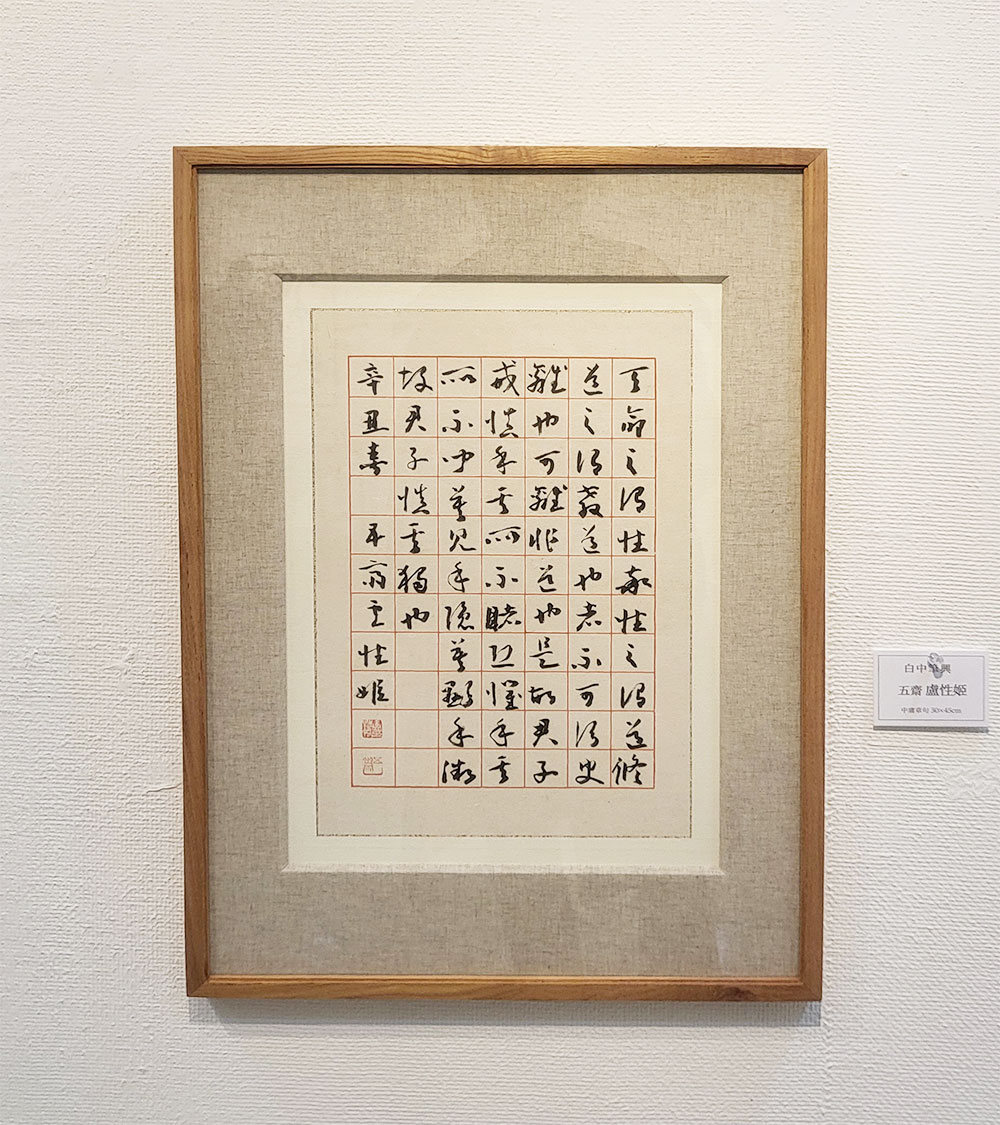 天命之謂性率性之謂道修
道之謂教道也者不可須臾
離也可離非道也是故君子
戒慎乎其所不睹恐懼乎其
所不聞莫見乎隱莫顯乎微
故君子慎其獨也
辛丑春 五齋盧性姬
白中 興
五齋 盧性姬
中庸章句 30×45cm